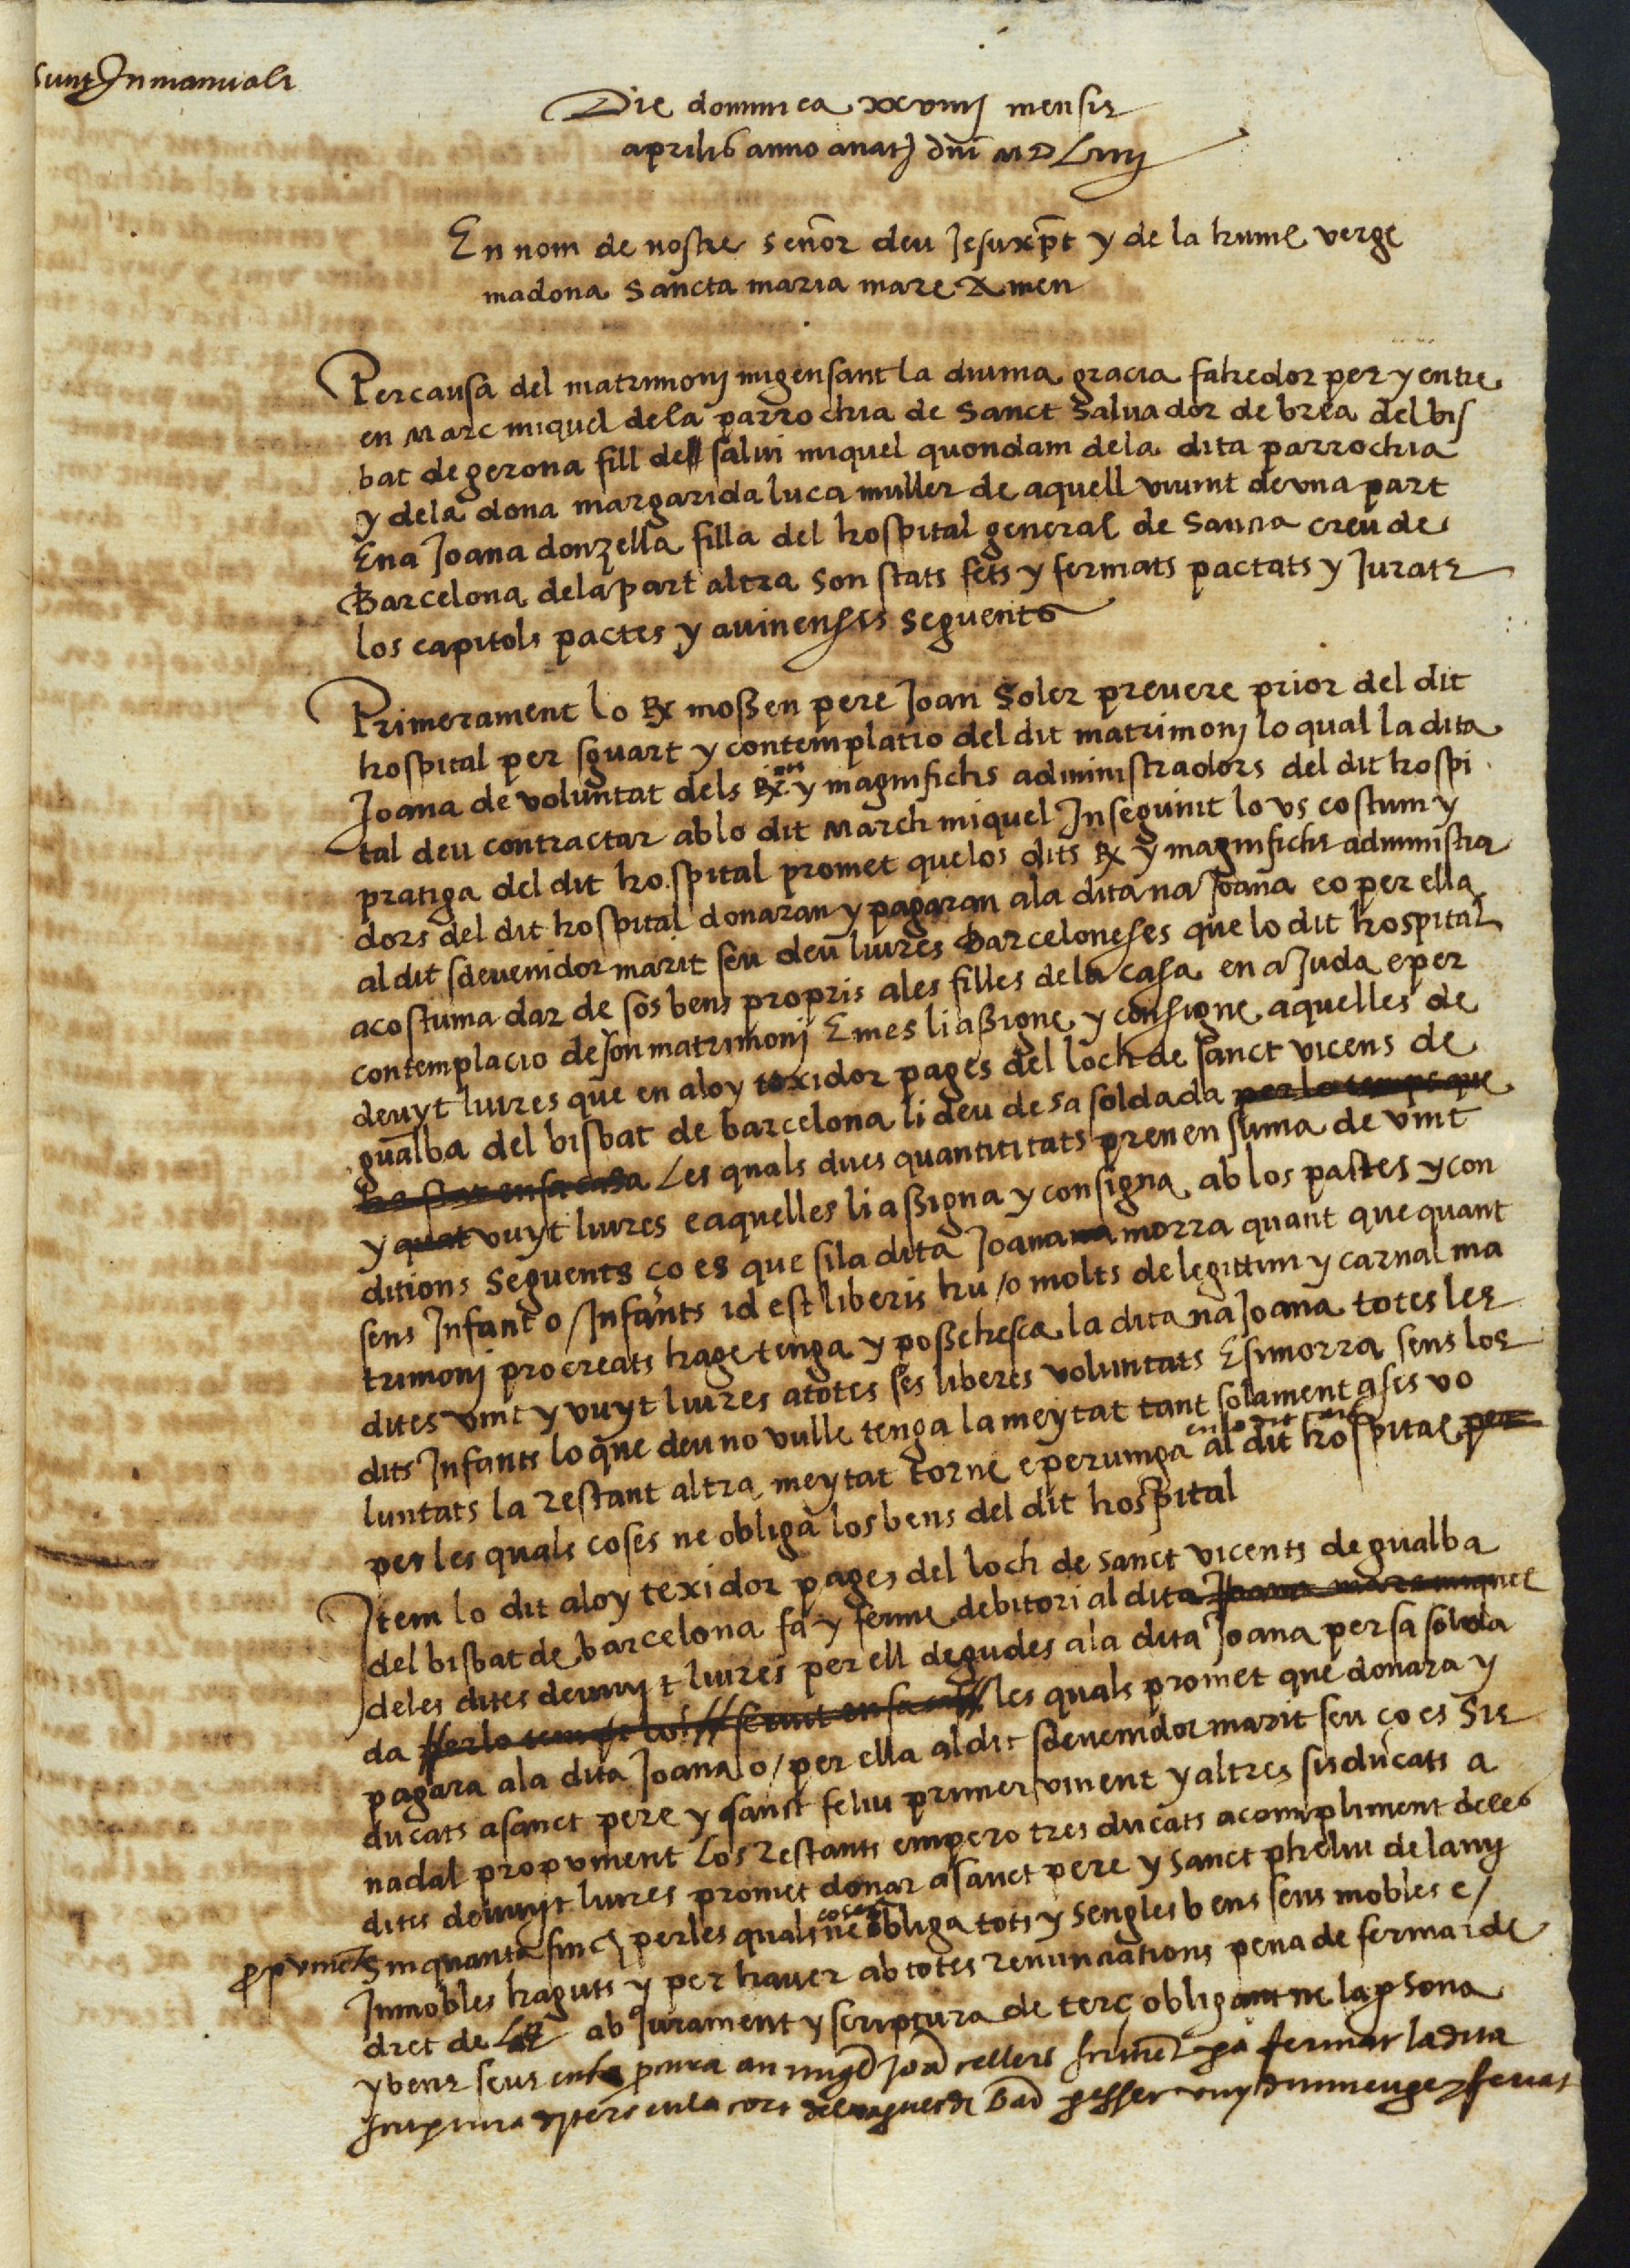 Sunt In manuali
Die dominica xxviiij mensis
aprilis anno anatj dni MDLiiij
En nom de nostre señor deu Jesuxpt y de la humil verge
madona Sancta maria mare X Amen
Per causa del matrimonj migensant la diuina gracia fahedor per y entre
en Marc miquel de la parrochia de Sanct Saluador de brea del bis
bat de gerona fill de salui miquel quondam de la dita parrochia
y de la dona margarida luca muller de aquell viuint de vna part
E na Joana donzella filla del hospital general de Sancta creu de
Barcelona de la part altra son stats fets y fermats pactats y Jurats
los capitols pactes y auinenses seguents
Primerament lo Rt mossen pere Joan Soler preuere prior del dit
hospital per sguart y contemplatio del dit matrimonj lo qual la dita
Joana de voluntat dels Rts y magnifichs administradors del dit hospi
tal deu contractar ab lo dit March miquel Inseguint lo vs costum y
pratiga del dit hospital promet que los dits Rt y magnifichs administra
dors del dit hospital donaran y pagaran a la dita na Joana eo per ella
al dit sdeuenidor marit seu deu liures Barceloneses que lo dit hospital
acostuma dar de sos bens propris a les filles de la casa en aJuda e per
contemplacio de son matrimonj E mes li assigne y consigne aquelles de
deuyt liures que en aloy texidor pages del loch de sanct vicens de
gualba del bisbat de barcelona li deu de sa soldada per lo temps que
ha stat en sa casa Les quals dues quantititats prenen suma de vint
y quat vuyt liures e aquelles li assigna y consigna ab los pactes y con
ditions Seguents ço es que si la dita Joana morra quant que quant
sens Infant o / Infants id est liberis hu / o molts de legittim y carnal ma
trimonj procreats hage tenga y possehesca la dita na Joana totes les
dites vint y vuyt liures a totes ses liberes voluntats E si morra sens los
dits Infants lo que deu no vulle tenga la meytat tant solament a ses vo
luntats la restant altra meytat torne e peruinga al dit hospital per
per les quals coses ne obliga los bens del dit hospital
Item lo dit aloy texidor pages del loch de sanct vicents de gualba
del bisbat de barcelona fa y ferme debitori al dita Joana marc miquel
de les dites deuuyt liures per ell degudes a la dita Joana per sa solda
da per lo temps seruit en sa casa les quals promet que donara y
pagara a la dita Joana o / per ella al dit sdeuenidor marit seu ço es Sis
ducats a sanct pere y sanct feliu primer vinent y altres sis ducats a
nadal prop vinent Los restants empero tres ducats a compliment deles
dites deuuyt liures promet donar a sanct pere y sanct pheliu de lany
prop vinent Sinquanta sinch per les quals coses ne obliga tots y sengles bens seus mobles e /
Inmobles haguts y per hauer ab totes renunciations pena de fermar de
dret de ab Jurament y scriptura de terç obligant ne la psona
y bens seus
fermar la dita
scriptura